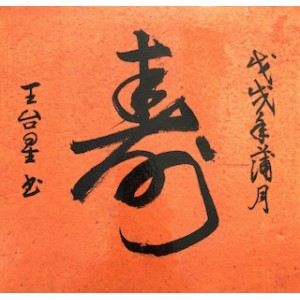 戊戌年蒲月
寿
王台星书